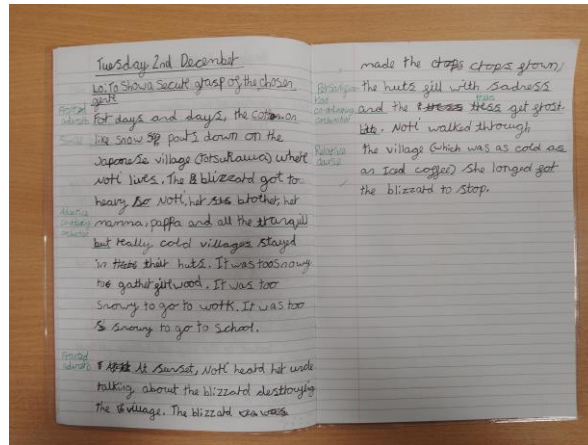 Tuesday 2nd December
Lo: To show a secure grasp of the chosen
genre
Fronted
adverbial
For days and days, the cotton
like snow pours down on the
Simile
Japanese village (Totsukawa) where
Nori lives. The blizzard got to
heavy so Nori, her brother, her
mamma, pappa and all the tranquil
but really cold villages stayed
in their huts. It was too snowy
to gather firewood. It was too
snowy to go to work. It was too
snowy to go to school.
Fronted
adverbial
At sunset, Nori heard her uncle
talking about the blizzard destroying
the village. The blizzard was
made the crops crops frown,
the huts fill with sadness
and the trees get frost
bite. Nori walked through
Relative
clause
the village (which was as cold as
an Iced coffee) She longed for
the blizzard to stop.